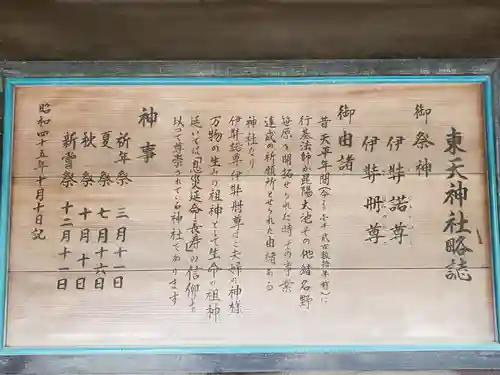 東天神社略誌
御祭神
伊弉諾尊
伊弉冊尊
御由諸
昔天平年間(今より壱千弐百数拾年前)に
行基法師が昆陽大池その他猪名野
笹原を開拓せられた時その事業
達成の祈願所とせられた由緒ある
神社なり
伊弉諾尊伊弉冊尊は夫婦の神様
万物の生みの祖神として生命の祖神
延いては「息災延命、長寿」の信仰を
以って尊崇されている神社であります
神事
祈年祭 三月十一日
夏祭 七月十六日
秋祭 十月十日
新嘗祭 十二月十一日
昭和四十五年十月十日記